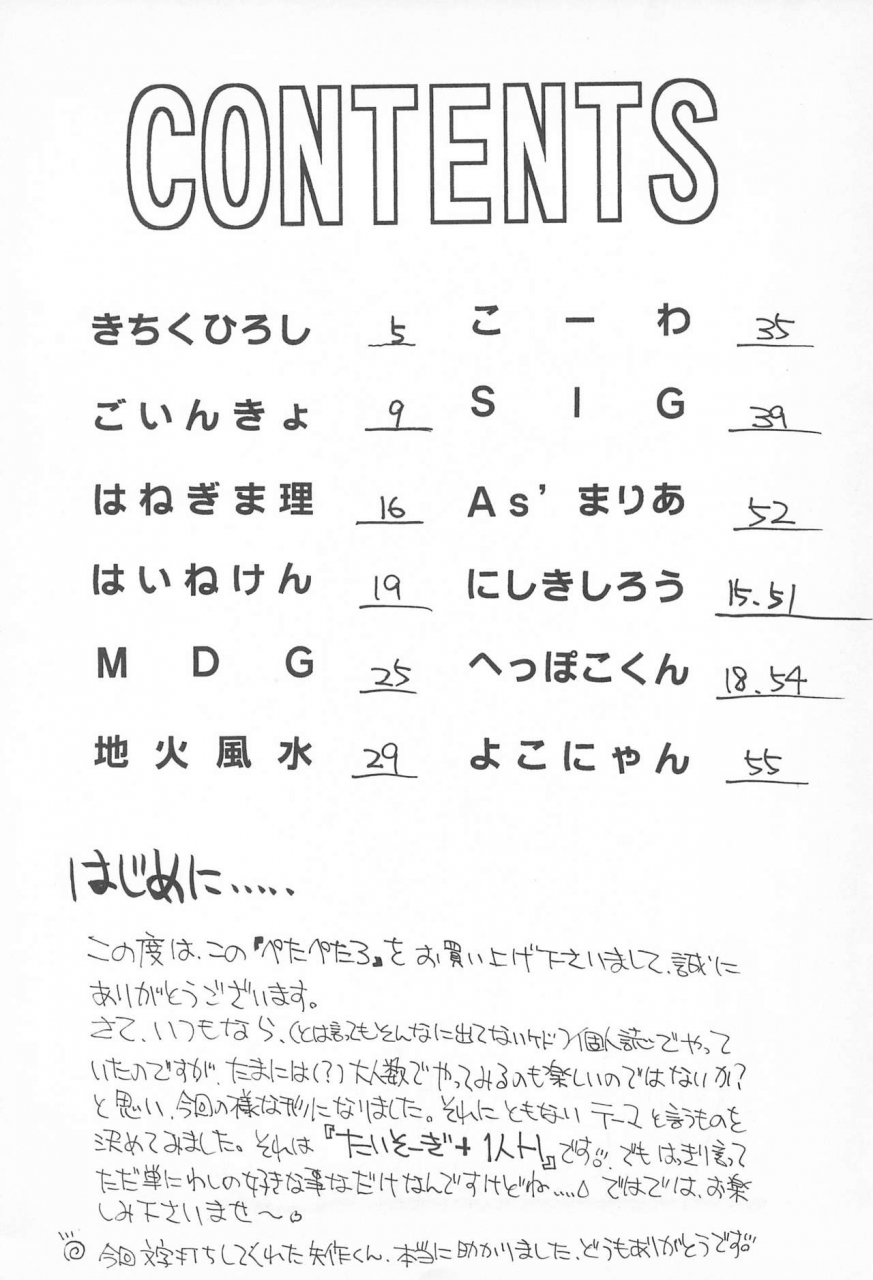 CONTENTS
きちくひろし 5
ごいんきょ 9
はねぎま理 16
はいねけん 19
MDG 25
地火風水 29
こーわ 35
SIG 39
As’まりあ 52
にしきしろう 15.51
へっぽこくん 18.54
よこにゃん 55
はじめに.....
この度は、この『ぺたぺた3』をお買い上げ下さいまして、誠に
ありがとうございます。
さて、いつもなら、(とは言ってもそんなに出てないケド)個人誌でやって
いたのですが、たまには(?)大人数でやってみるのも楽しいのではないか?
と思い、今回の様な刊になりました。それにともない テーマと言うものを
決めてみました。それは『たいそーぎ+1人H』です。でもはっきり言って
ただ単にわしの好きな事なだけなんですけどね.... ではでは、お楽
しみ下さいませ〜。
今回文字打ちしてくれた矢作くん、本当に助かりました、どうもありがとうです。